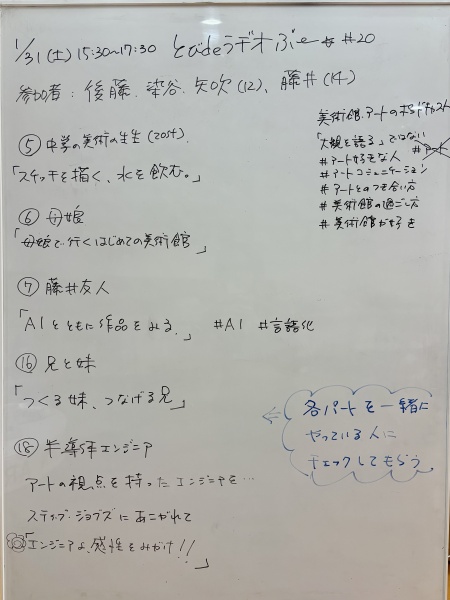 1/31(土) 15:30~17:30 とびdeラヂオぶ~ #20
参加者：後藤、染谷、矢吹(12)、藤井(14)
美術館、アートのポッドキャスト
⑤ 中学の美術の先生
「スケッチを描く、水を飲む。」
「大観を語る」ではない
#アート
#アート好きな人
#アートコミュニケーション
#アートとのつき合い方
#美術館の過ごし方
#美術館が好き
⑥ 母娘
「母娘で行くはじめての美術館」
⑦ 藤井友人
「AIとともに作品をみる。」 #AI #言語化
⑯ 兄と妹
「つくる妹、つなげる兄」
各パートを一緒に
やっている人に
チェックしてもらう
⑱ 半導体エンジニア
アートの視点を持ったエンジニアを…
スティーブ・ジョブズにあこがれて
「エンジニアよ、感性をみがけ!!」